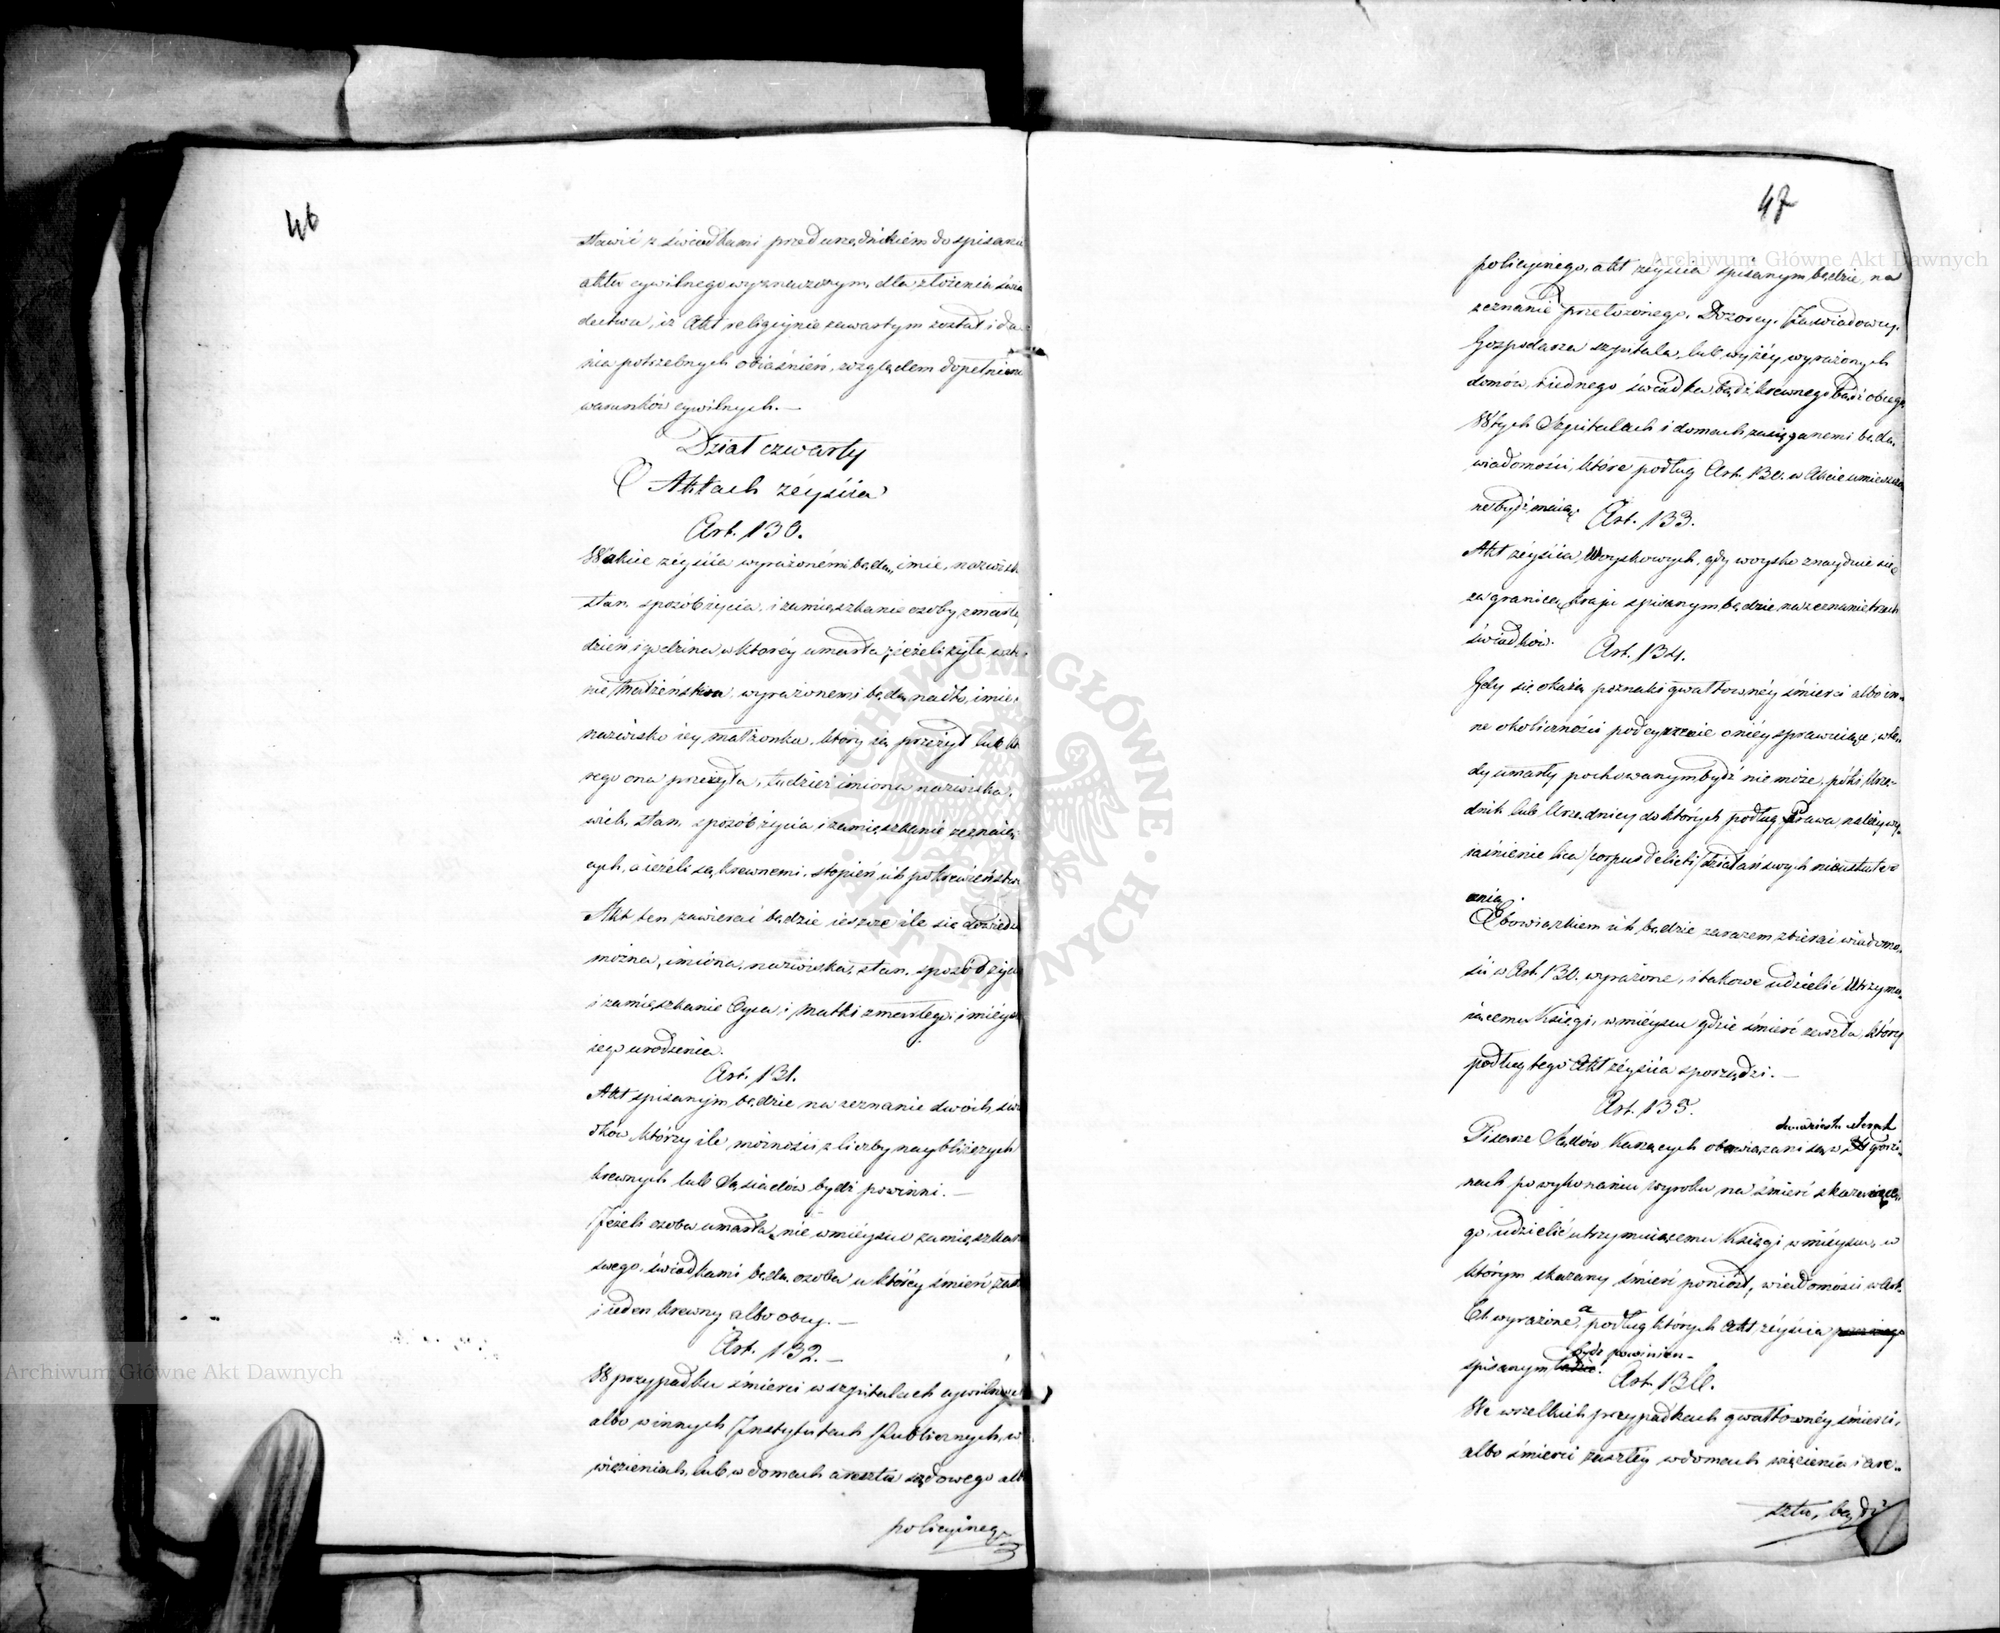 46
stawić z świadkami przed urzędnikiem do spisania
aktu cywilnego wyznaczonym, dla złożenia świa
dectwa, iż Akt religijnie zawartym został i da
nia potrzebnych obiaśnień, względem dopełnienia
warunków cywilnych. —
Dział czwarty
O Aktach zéyścia
Art. 130.
W akcie zéyścia wyrażonémi będą, imie, nazwisko
stan, sposób życia, i zamieszkanie osoby zmarłey,
dzień i godzina, w któréy umarła; ieżeli żyła w sta
nie Małżeńskim, wyrażonemi będą nadto, imie,
nazwisko iéy małżonka, który ią przeżył lub któ
rego ona przeżyła, tudzież imiona nazwiska,
wiek, stan, sposób życia i zamieszkanie zeznaią
cych, a ieżeli są krewnemi, stopień ich pokrewieństwa
Akt ten zawierać będzie ieszcze ile się dowiedzieć
można, imiona, nazwiska, stan, sposób życia
i zamieszkanie Oyca, i Matki zmarłego, i miéysce
iego urodzenia.
Art. 131.
Akt spisanym będzie na zeznanie dwóch świa
dków, którzy ile możności z liczby naybliższych
krewnych lub Sąsiadów bydź powinni. —
Jeżeli osoba umarła, nie w miéyscu zamieszkania
swego, świadkami będą, osoba u któréy śmierć zaszła
i ieden krewny albo obcy. —
Art. 132. —
W przypadku śmierci w szpitalach cywilnych
albo w innych Instytutach Publicznych, w
więzieniach, lub w domach aresztu sądowego albo
policyinego
47
policyinego, akt zeyścia spisanym będzie, na
zeznanie przełożonego, Dozorcy, Zawiadowcy,
Gospodarza szpitala, lub wyżéy wyrażonych
domów, i iednego świadka, bądź krewnego bądź obcego
W tych Szpitalach i domach zasięganemi będą,
wiadomości, które podług Art. 130. w Akcie umieszczo
ne bydź maią.
Art. 133.
Akt zéyścia, Woyskowych, gdy woysko znayduie się
za granicą kraju spisanym będzie na zeznanie trzech
świadków.
Art. 134.
Gdy się okażą poznaki gwałtownéy śmierci albo in-
ne okoliczności podeyrzenie o niéy sprawuiące, wte-
dy umarły pochowanym bydź nie może, póki Urzę-
dnik lub Urzędnicy do których podług Prawa, należy wy-
iaśnienie lica /corpus delicti/ działań swych nieustute-
cznią.
Obowiązkiem ich będzie zarazem zbierać wiadomo-
ści w Art. 130. wyrażone, i takowe udzielić Utrzymu-
iącemu Księgi, w miéyscu gdzie śmierć zaszła, który
podług tego Akt zéyścia sporządzi. —
Art. 135.
dwudziestu czterech
Pisarze Sądów karzących obowiązani są, w godzi-
nach po wykonaniu wyroku na śmierć skazuiące-
go, udzielić utrzymuiącemu Księgi w miéyscu, w
którym skazany śmierć poniósł, wiadomości w Art.
wyrażone, a podług których Akt zéyścia
bydź powinien —
spisanym
Art. 136.
We wszelkich przypadkach gwałtownéy śmierci,
albo śmierci zaszłéy w domach więzienia i are-
sztu, bądź
Archiwum Główne Akt Dawnych
Archiwum Główne Akt Dawnych
ARCHIWUM GŁÓWNE AKT DAWNYCH